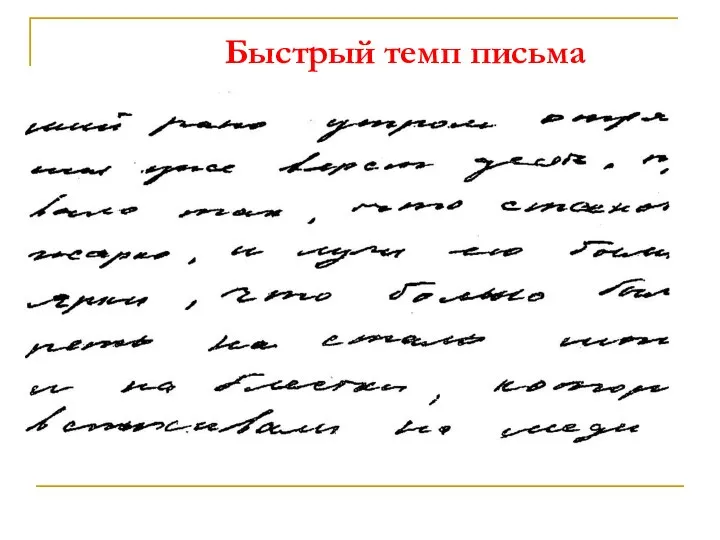 Быстрый темп письма
ший рано утром отря
шел уже верст десять, п
вало так, что станов
жарко, и лучи его были
ярки, что больно был
реть на сталь шты
и на блестки, котор
вспыхивали на меди